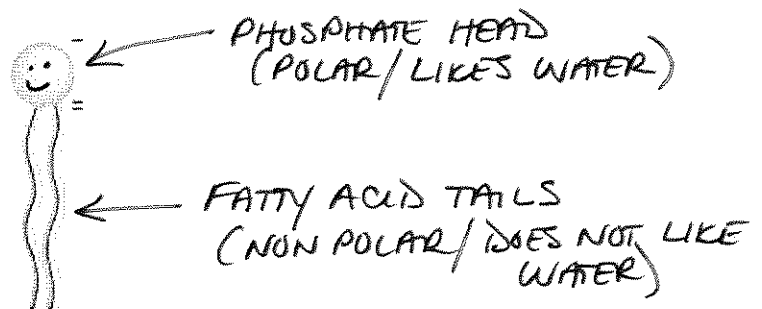 PHOSPHATE HEAD
(POLAR/LIKES WATER)
FATTY ACID TAILS
(NON POLAR/DOES NOT LIKE
WATER)